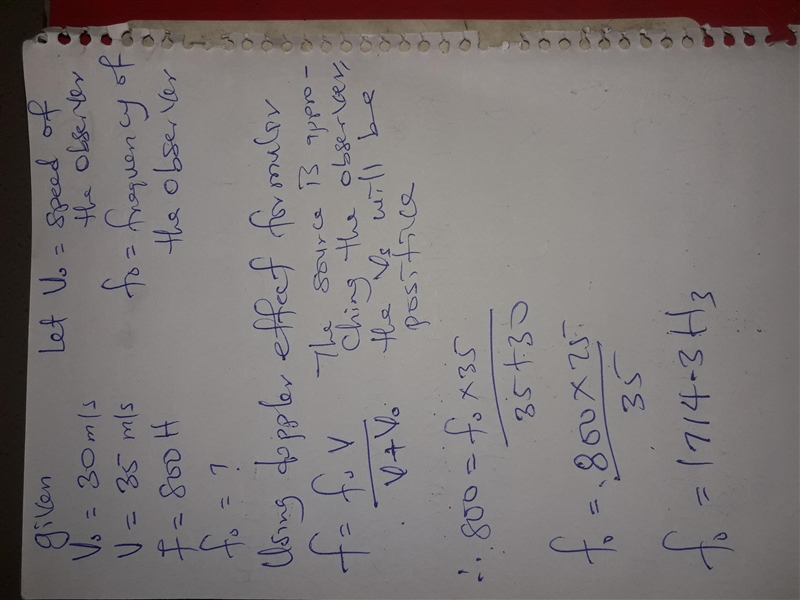 given
V₀ = 30 m/s
Let V₀ = speed of
the observer
V = 35 m/s
f₀ = frequency of
the observer
f = 800 H
f₀ = ?
Using doppler effect formular
f = f₀ V / V + V₀
The source is appro-
ching the observer,
the Vs will be
positive
∴ 800 = f₀ × 35 / 35 + 30
f₀ = 800 × 25 / 35
f₀ = 1714.3 Hz